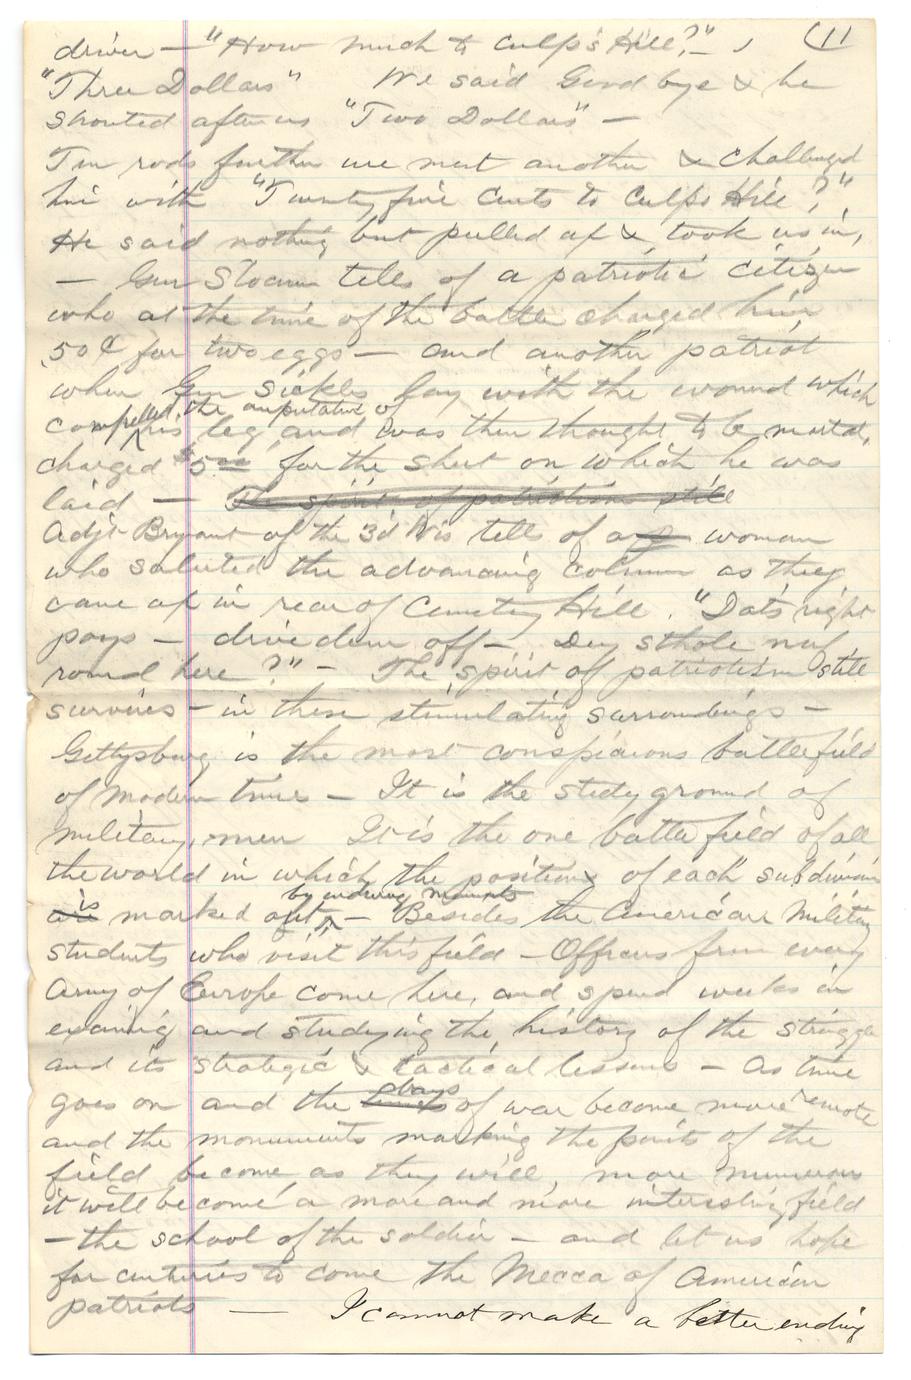 driver — "How much to Culp's Hill?" — (11
"Three Dollars" We said Good bye & he
shouted after us "Two Dollars" —
Ten rods further we met another & challenged
him with "Twenty five Cents to Culps Hill?"
He said nothing but pulled up & took us in,
— Gen Slocum tells of a patriotic citizen
who at the time of the battle charged him
.50¢ for two eggs — and another patriot
when Gen Sickles lay with the wound which
compelled the amputation of his leg and was then thought to be mortal,
charged $5.00 for the sheet on which he was
laid — The spirit of patriotism still
Adjt Bryant of the 3d Wis tells of a woman
who saluted the advancing column as they
came up in rear of Cemetery Hill. "Dats right
poys — drive dem off — Dey sthole nuf
round here?" — The spirit of patriotism still
survives — in these stimulating surroundings —
Gettysburg is the most conspicuous battlefield
of modern times — It is the study ground of
military men It is the one battle field of all
the world in which the position of each subdivision
is marked out by enduring monuments — Besides the American Military
students who visit this field — Officers from every
Army of Europe come here, and spend weeks in
examing and studying the history of the struggle
and its strategic & tactical lessons — As time
goes on and the days of war become more remote
and the monuments marking the points of the
field become as they will, more numerous
it will become a more and more interesting field
— the school of the soldier — and let us hope
for centuries to come the Mecca of American
patriots — I cannot make a better ending